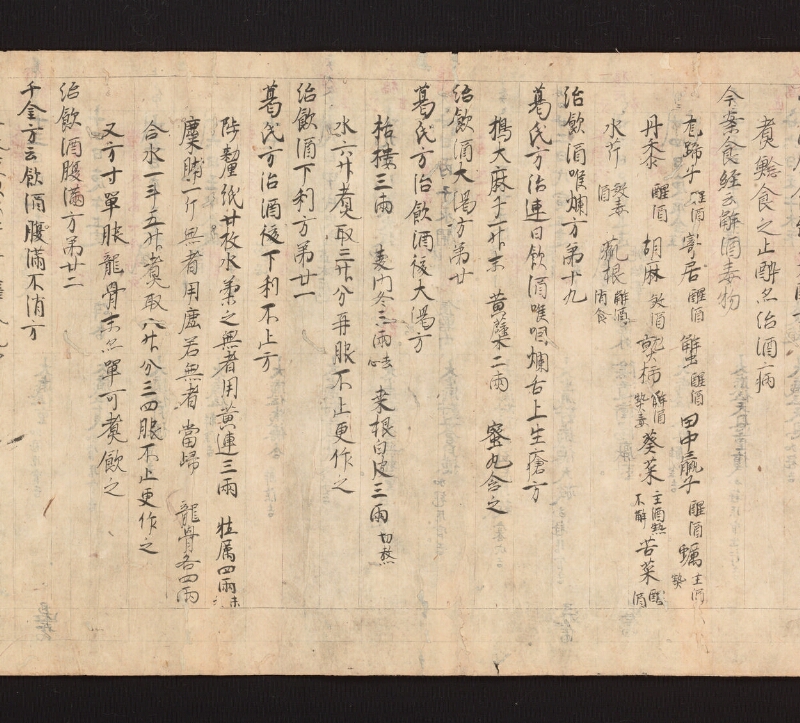 煮鯰食之止醉亦治酒病
今案食經云解酒毒物
尨蹄子 醒酒 寄居 醒酒 蟹 醒酒 田中蠃子 醒酒 蠣 主酒
丹黍 醒酒 胡麻 熟柿 解酒熱毒 葵菜 主酒熱不解 苦菜 醒酒
水芹 酒 菰根 解酒消食
治飲酒喉爛方第十九
葛氏方治連日飲酒喉咽爛舌上生瘡方
擣大麻子一升末 黄蘗二兩 蜜丸含之
治飲酒大渴方第廿
葛氏方治飲酒後大渴方
栝樓三兩 麦門冬三兩去心 桒根白皮三兩切熬
水六升煮取三升分再服不止更作之
治飲酒下利方第廿一
葛氏方治酒後下利不止方
陟釐紙廿枚水煮之無者用黄連三兩 牡厲四兩
麋脯一斤無者用鹿若無者當歸 龍骨各四兩
合水一斗五升煮取八升分三四服不止更作之
又方寸單服龍骨末亦單可煮飲之
治飲酒腹滿方第廿二
千金方云飲酒腹滿不消方